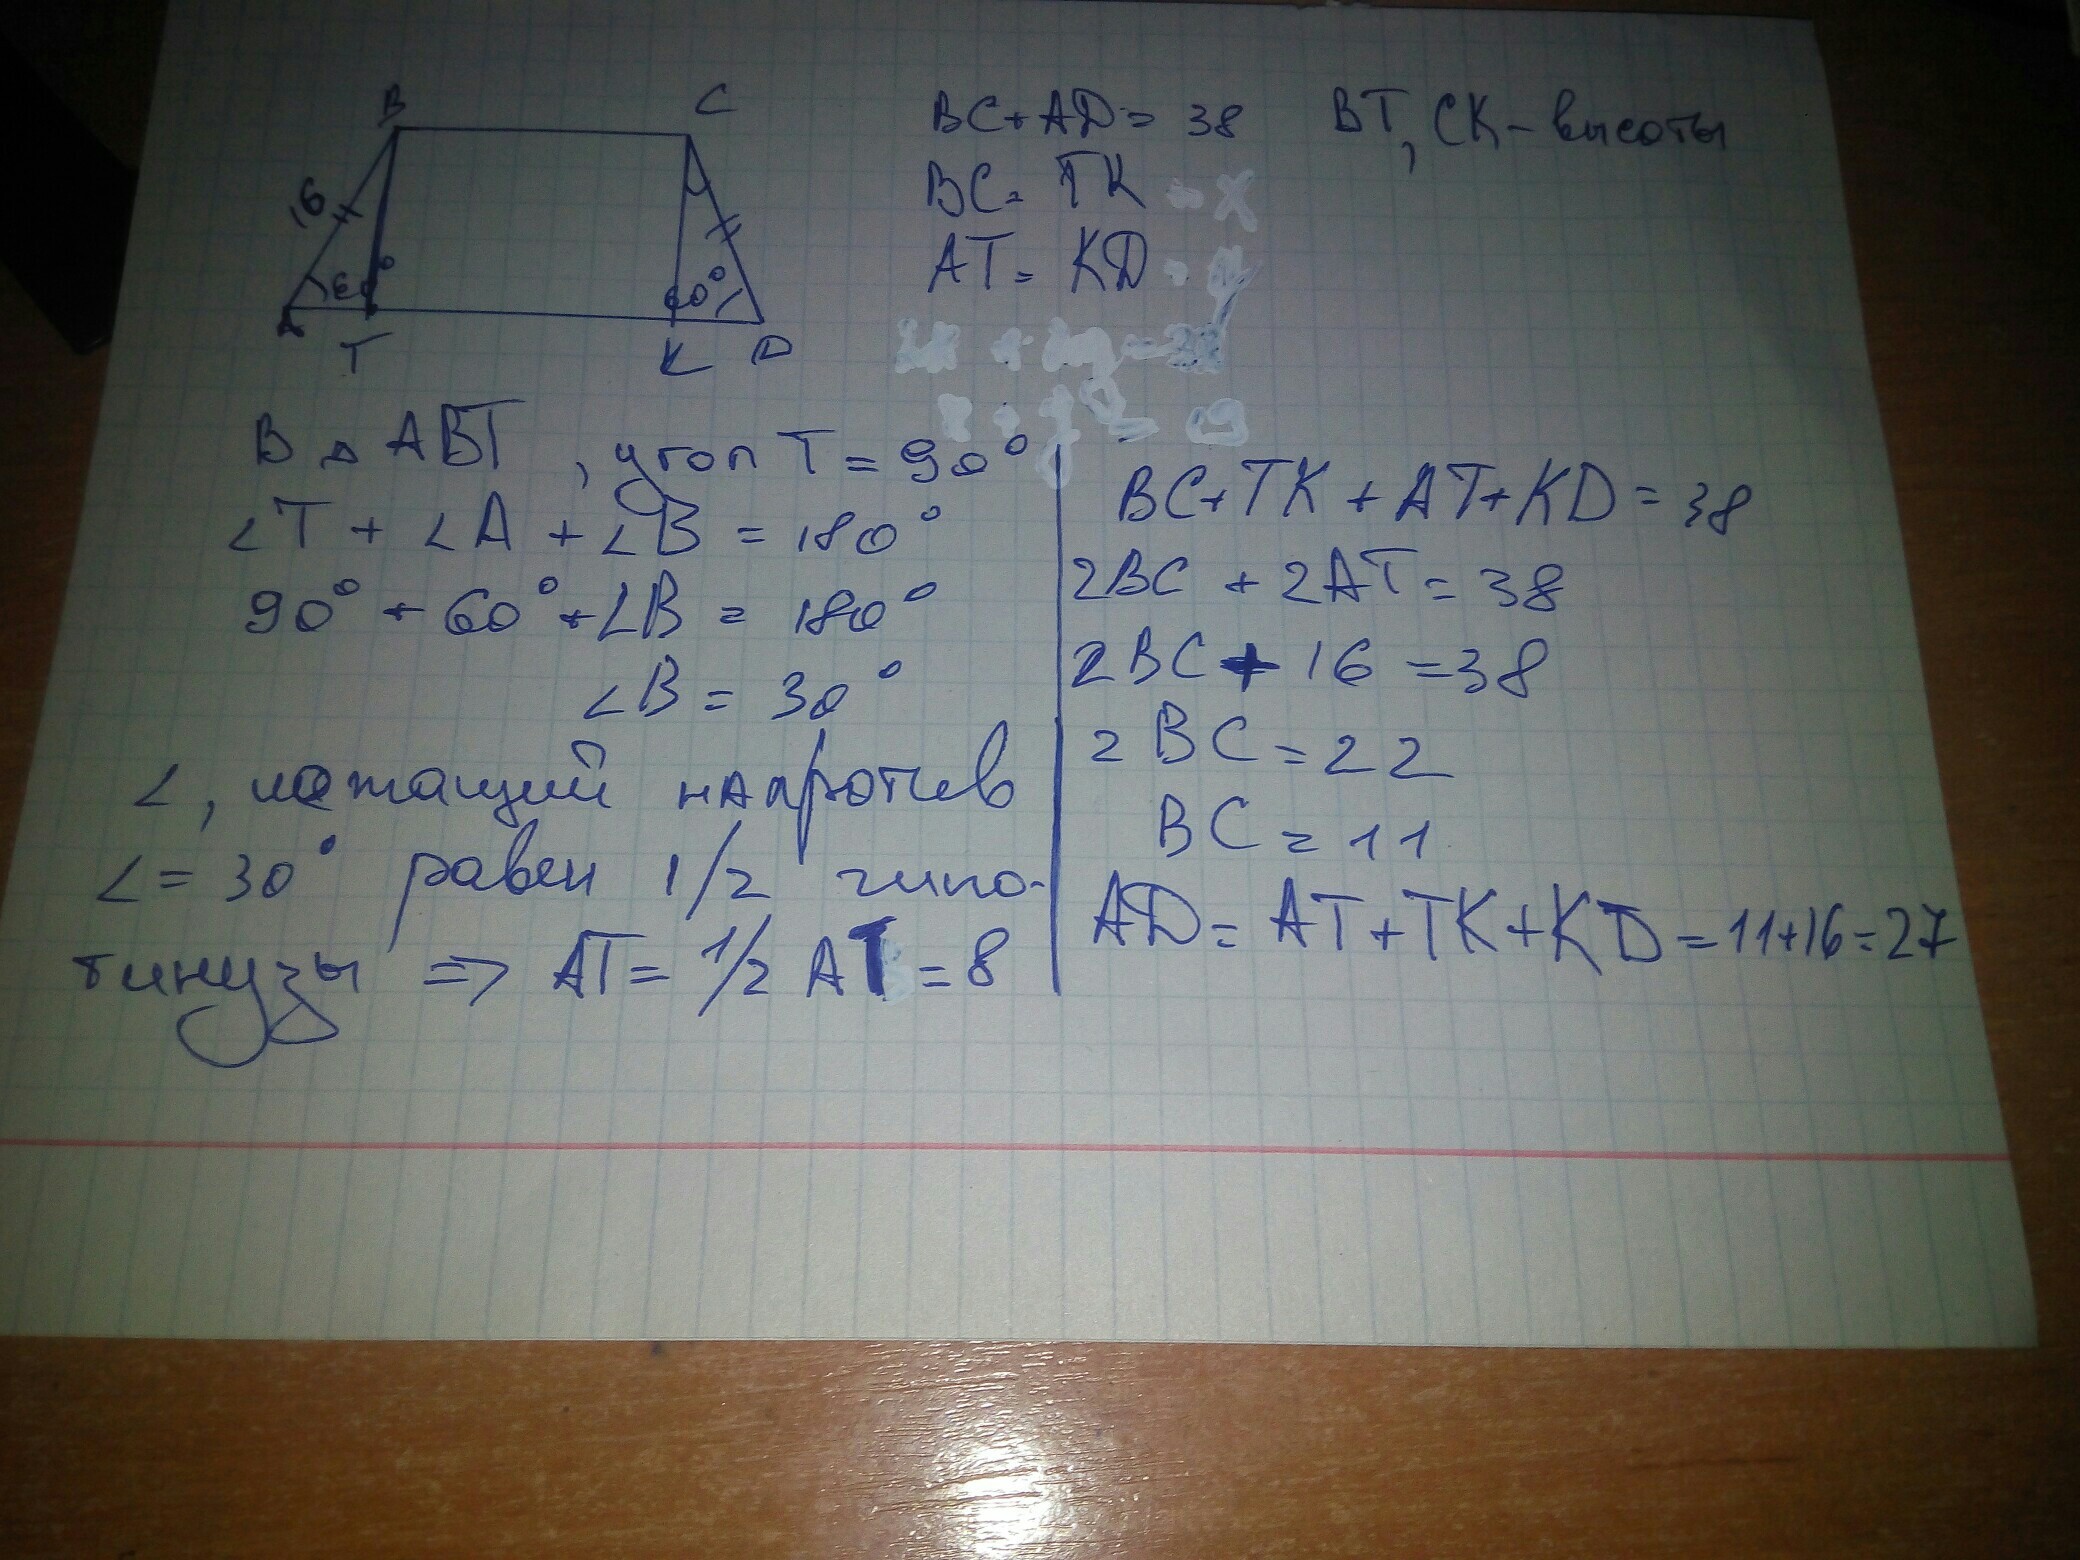 B C
16
60° 60°
A T K D
BC+AD=38 BT, CK-высоты
BC=TK
AT=KD
В △ ABT, угол T=90°
∠T+∠A+∠B=180°
90°+60°+∠B=180°
∠B=30°
∠, лежащий напротив
∠=30° равен 1/2 гипо-
тинузы => AT=1/2 AT=8
BC+TK+AT+KD=38
2BC+2AT=38
2BC+16=38
2BC=22
BC=11
AD=AT+TK+KD=11+16=27